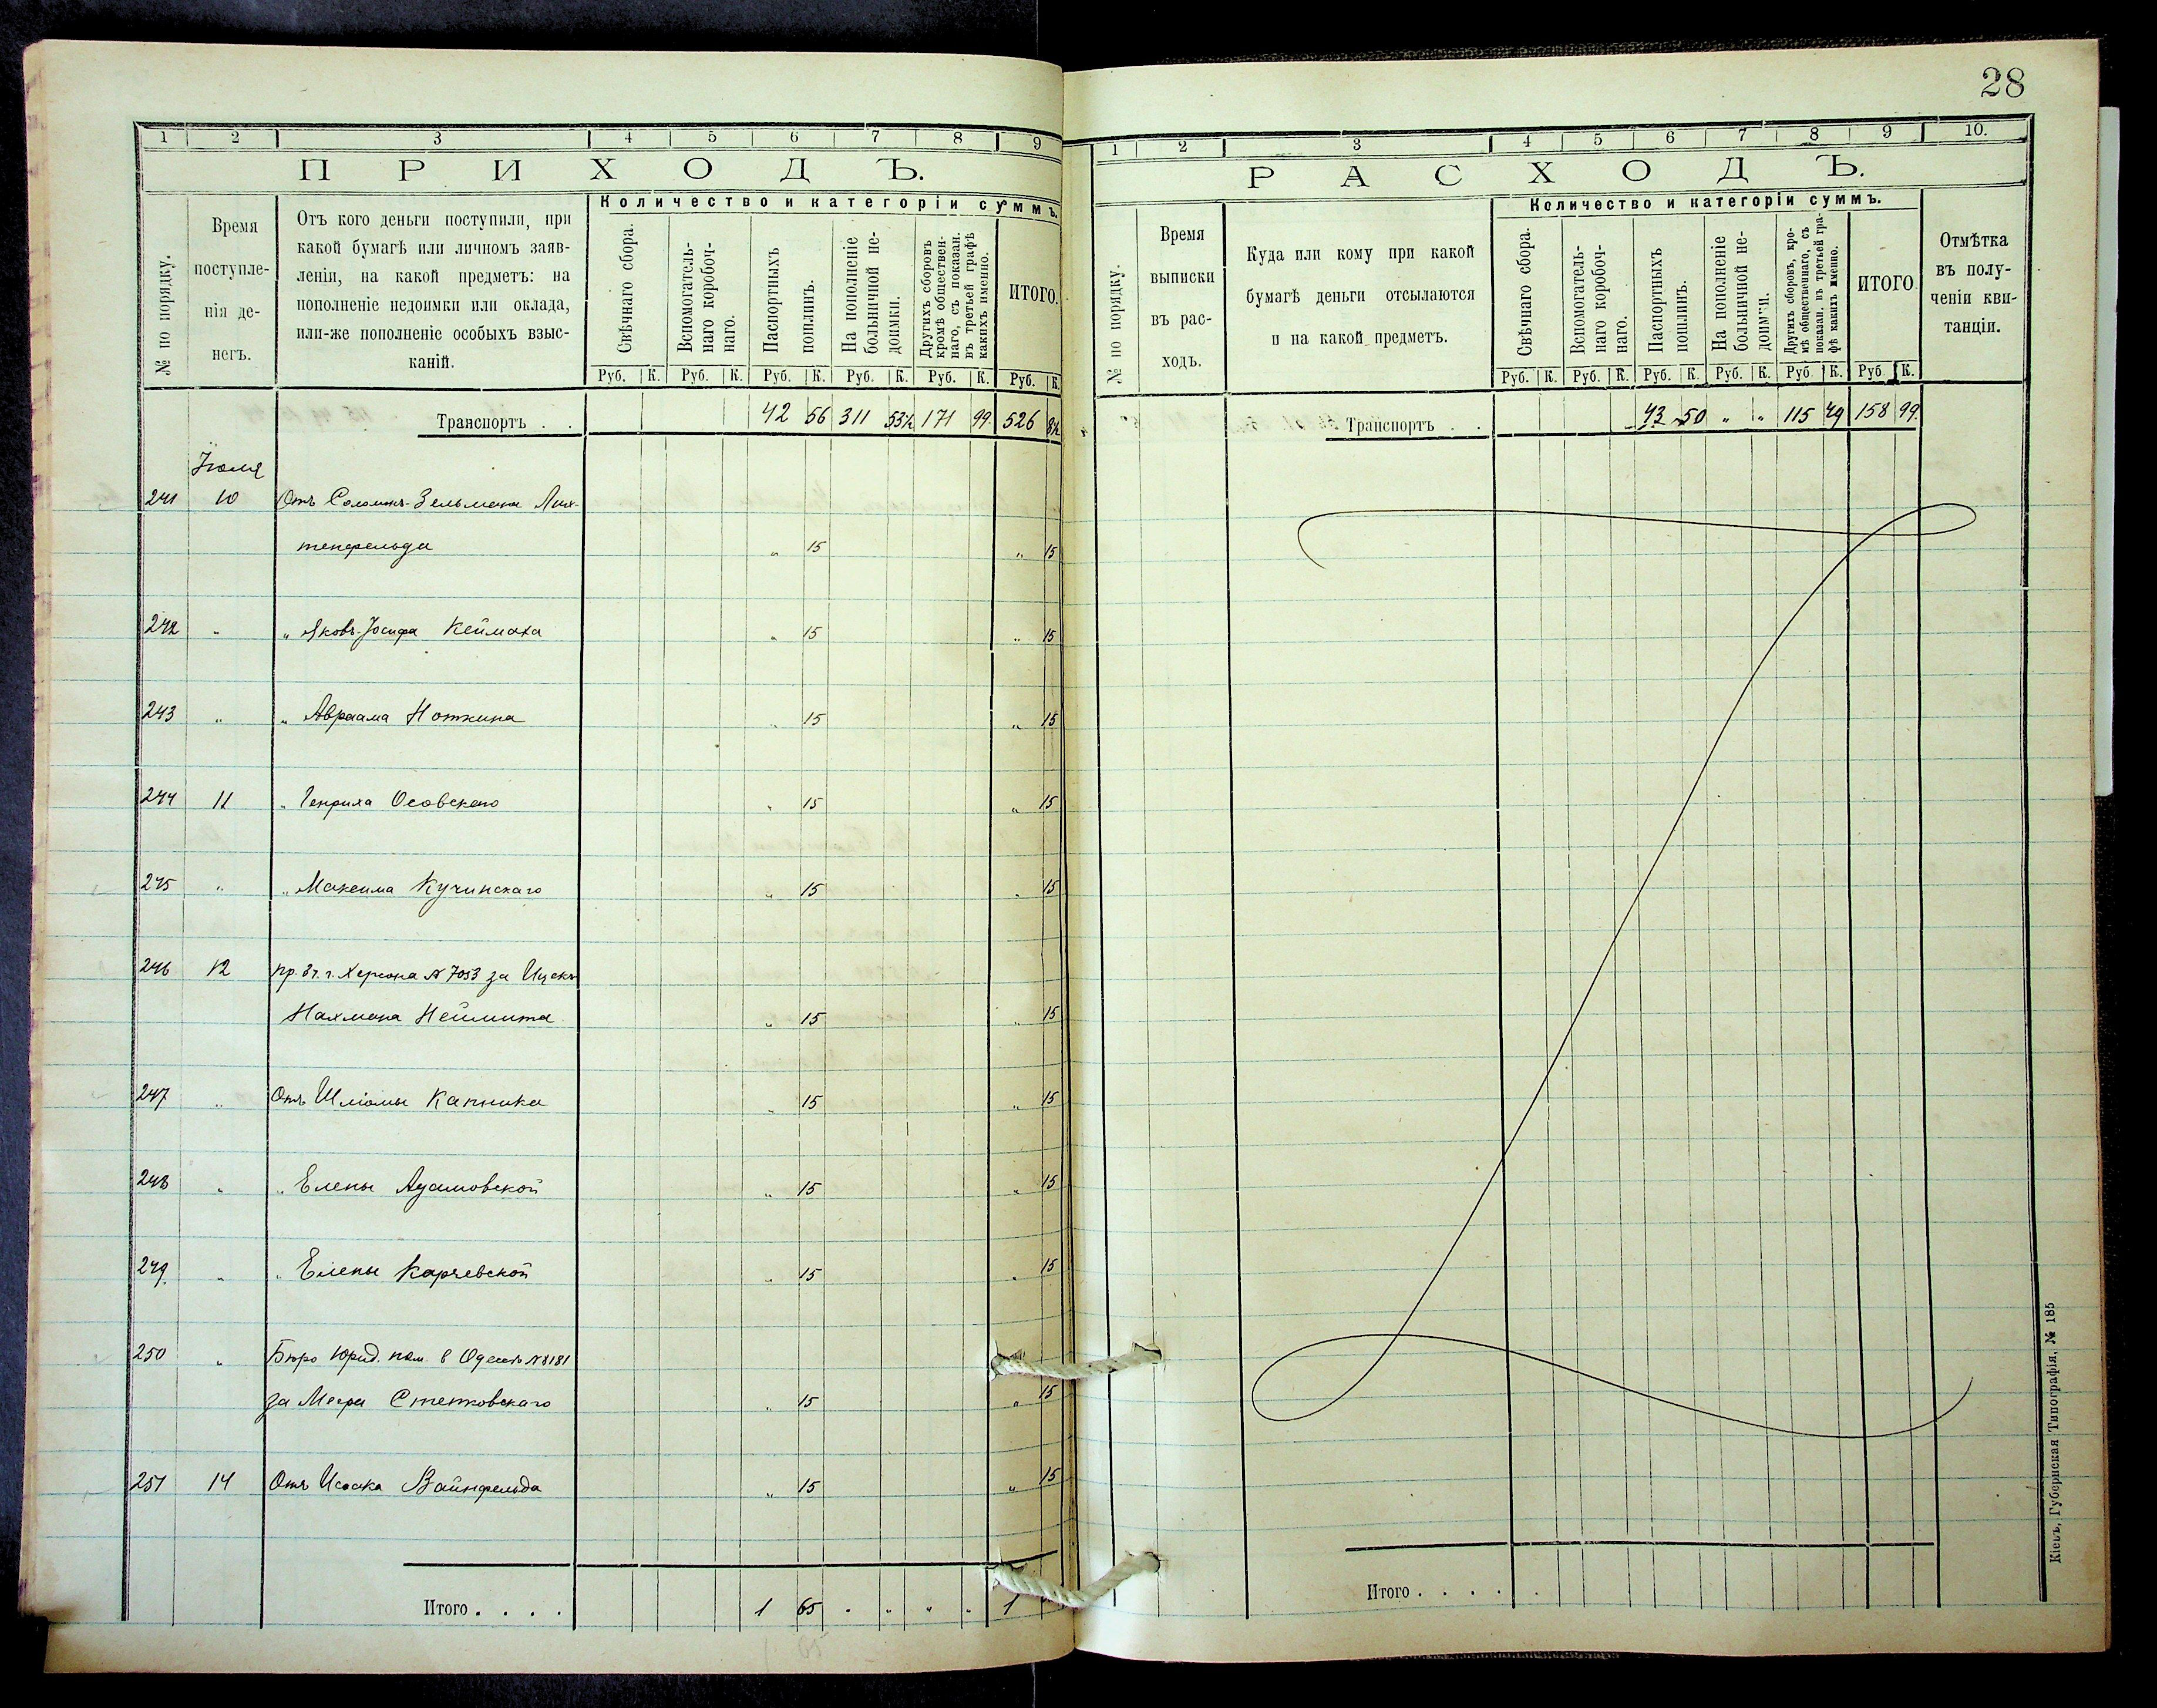 28
1 2 3 4 5 6 7 8 9
ПРИХОДЪ.
№ по порядку.
Время
поступле-
нія де-
негъ.
Отъ кого деньги поступили, при
какой бумагѣ или личномъ заяв-
леніи, на какой предметъ: на
пополненіе недоимки или оклада,
или-же пополненіе особыхъ взыс-
каній.
Количество и категоріи суммъ.
Свѣчнаго сбора.
Вспомогатель-
наго коробоч-
наго.
Паспортныхъ
пошлинъ.
На пополненіе
больничной не-
доимки.
Другихъ сборовъ
кромѣ обществен-
наго, съ показан.
въ третьей графѣ
какихъ именно.
ИТОГО.
Руб. К. Руб. К. Руб. К. Руб. К. Руб. К. Руб. К.
Транспортъ . . 42 56 311 53½ 171 99. 526 8½
Іюля
241 10 Отъ Соломонъ-Зельмана Лих-
тенфельда " 15 " 15
242 " " Яковъ-Іосифа Кеймаха " 15 " 15
243 " " Авраама Ноткина " 15 " 15
244 11 " Генриха Осовскаго " 15 " 15
245 " " Максима Кучинскаго " 15 " 15
246 12 пр. от. г. Херсона № 7053 за Ицекъ
Нахмана Неймита " 15 " 15
247 " Отъ Шліомы Капника " 15 " 15
248 " " Елены Адамовской " 15 " 15
249. " " Елены Карчевской " 15 " 15
250 " Бюро Юрид. пом. в Одессѣ № 8181
за Меера Стетковскаго " 15 " 15
251 14 Отъ Исаака Вайнфельда " 15 " 15
Итого . . . . 1 65 " " " " 1
1 65
1 2 3 4 5 6 7 8 9 10.
РАСХОДЪ.
№ по порядку.
Время
выписки
въ рас-
ходъ.
Куда или кому при какой
бумагѣ деньги отсылаются
и на какой предметъ.
Количество и категоріи суммъ.
Свѣчнаго сбора.
Вспомогатель-
наго коробоч-
наго.
Паспортныхъ
пошлинъ.
На пополненіе
больничной не-
доимки.
Другихъ сборовъ, кро-
мѣ общественнаго, съ
показан. въ третьей гра-
фѣ какихъ именно.
ИТОГО.
Отмѣтка
въ полу-
ченіи кви-
танціи.
Руб. К. Руб. К. Руб. К. Руб. К. Руб. К. Руб. К.
Транспортъ . . 43 50 " " 115 49 158 99.
Итого . . . . .
Кіевъ, Губернская Типографія, № 185